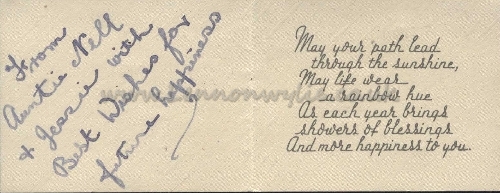 From
Auntie Nell
& Jessie with
Best Wishes for
future happiness
May your path lead
through the sunshine,
May life wear
a rainbow hue
As each year brings
showers of blessings
And more happiness to you.